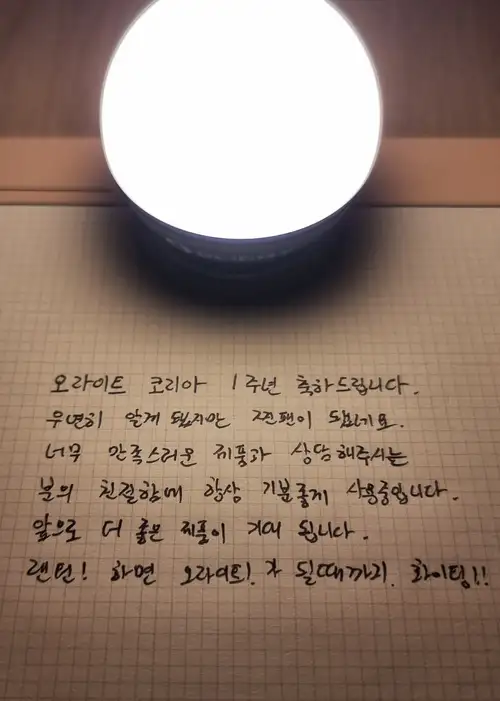 오라이트 코리아 1주년 축하드립니다.
우연히 알게 됐지만 찐팬이 되었네요.
너무 만족스러운 제품과 상담해주시는
분의 친절함에 항상 기분좋게 사용중입니다.
앞으로 더 좋은 제품이 기대 됩니다.
랜턴! 하면 오라이트! 가 될때까지 화이팅!!